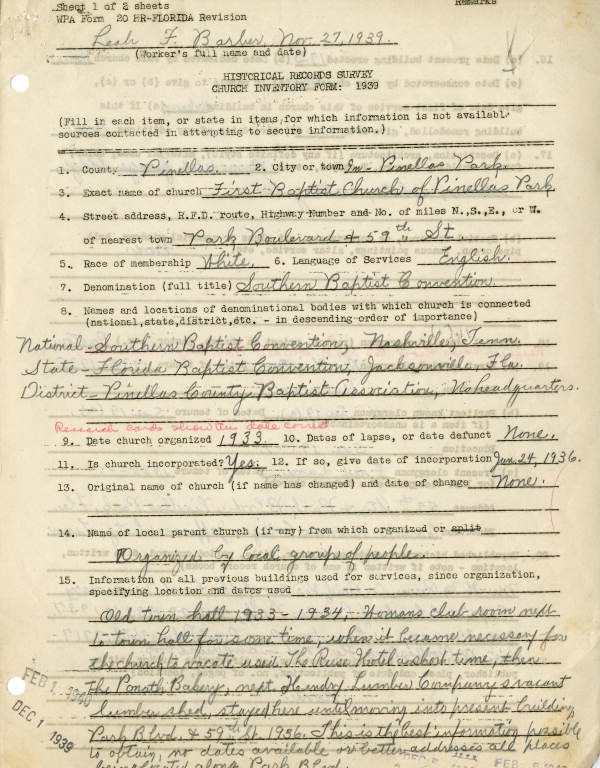 Sheet 1 of 2 sheets
Remarks
WPA Form 20 HR-FLORIDA Revision
Leah F. Barber, Nov. 27, 1939.
(Worker's full name and date)
HISTORICAL RECORDS SURVEY
CHURCH INVENTORY FORM: 1939
(Fill in each item, or state in items for which information is not available
sources contacted in attempting to secure information.)
1. County Pinellas. 2. City or town In - Pinellas Park.
3. Exact name of church First Baptist Church of Pinellas Park
4. Street address, R.F.D. route, Highway Number and No. of miles N.,S.,E., or W.
of nearest town Park Boulevard & 59th St.
5. Race of membership White. 6. Language of Services English.
7. Denomination (full title) Southern Baptist Convention.
8. Names and locations of denominational bodies with which church is connected
(national,state,district,etc. - in descending order of importance)
National - Southern Baptist Convention, Nashville, Tenn.
State - Florida Baptist Convention, Jacksonville, Fla.
District - Pinellas County Baptist Association, No headquarters.
Research cards show this date correct
9. Date church organized 1933 10. Dates of lapse, or date defunct None.
11. Is church incorporated? Yes. 12. If so, give date of incorporation Jan. 24, 1936.
13. Original name of church (if name has changed) and date of change None.
14. Name of local parent church (if any) from which organized or split
Organized by local groups of people.
15. Information on all previous buildings used for services, since organization,
specifying location and dates used
Old town hall 1933-1934, Womans club room next
to town hall for some time, when it became necessary for
the church to vacate used The Reuse Hotel a short time, then
the Bakery, next Hendry Lumber Company's vacant
lumber shed, stayed here until moving into present building
Park Blvd. & 59th St. 1936. This is the best information possible
to obtain, no dates available or better addresses all places
being located along Park Blvd.
FEB 1 1940
DEC 1 1939